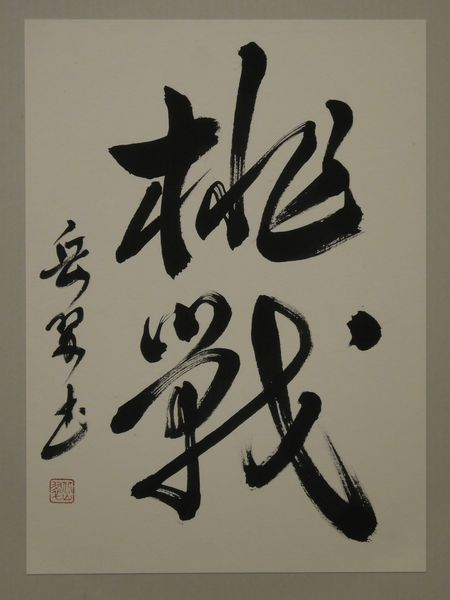 挑戦
岳翠書